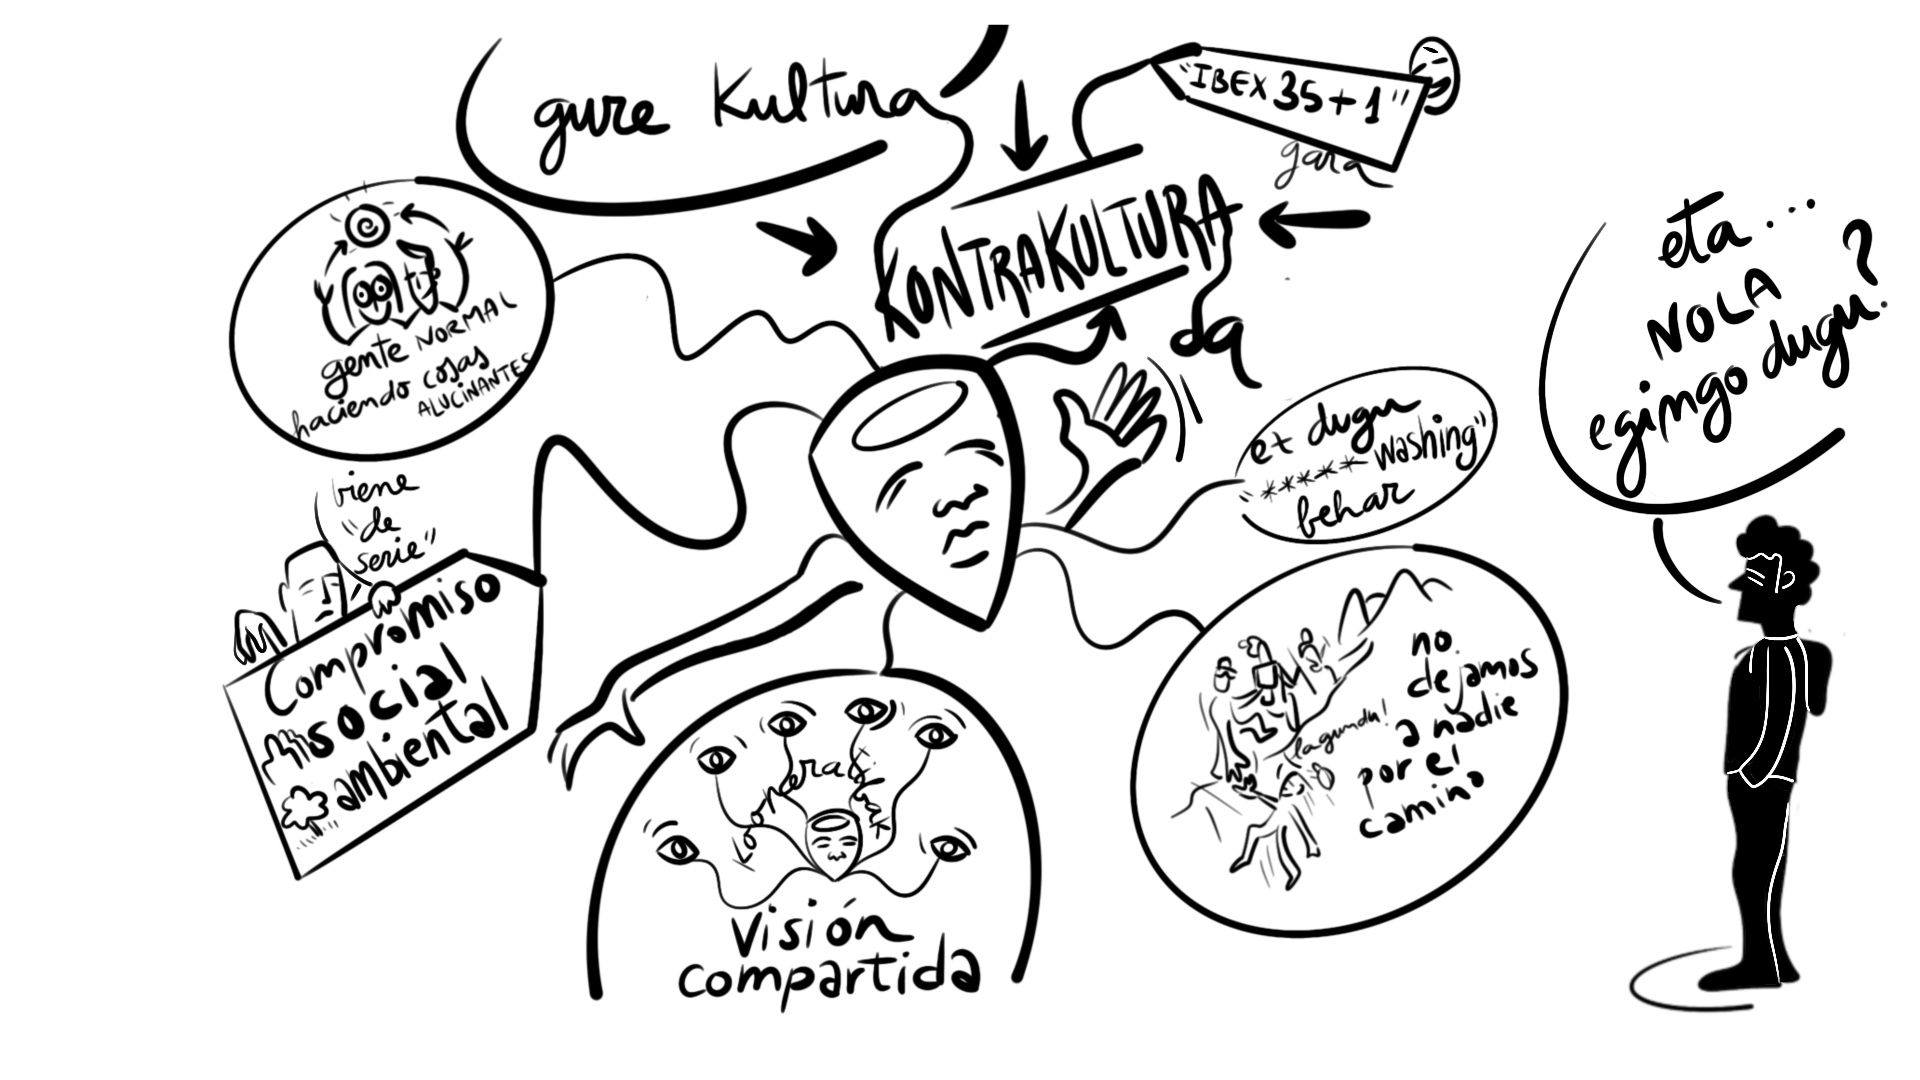 gure Kultura
KONTRAKULTURA
da
"IBEX 35+1"
gara
gente NORMAL
haciendo cosas
ALUCINANTES
viene
"de
serie"
Compromiso
social
ambiental
Visión
compartida
ez dugu
"***** washing"
behar
no
dejamos
a nadie
por el
camino
lagundu!
eta...
NOLA
egingo dugu?